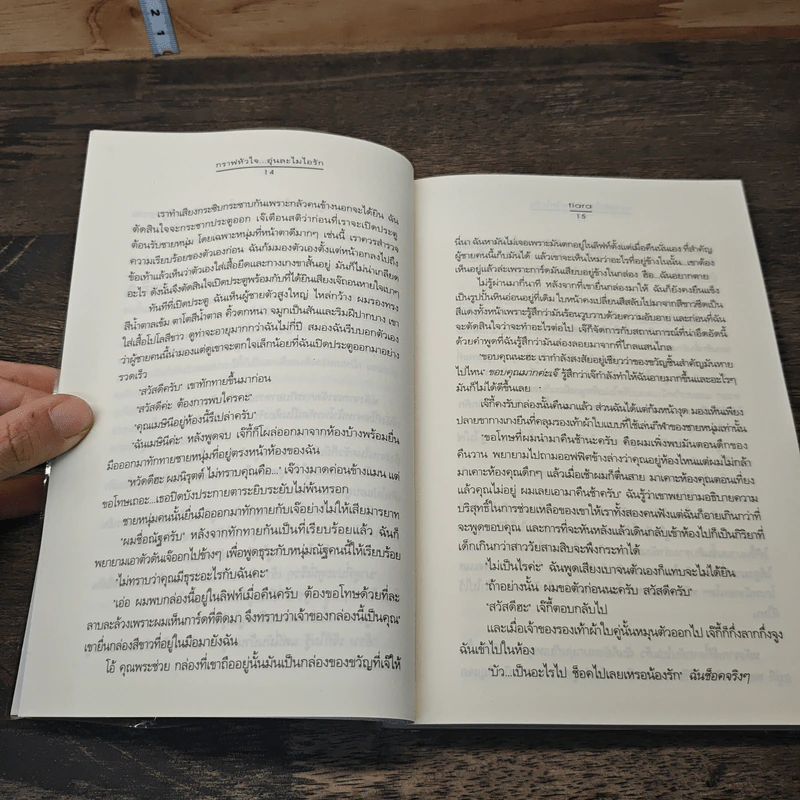 2 1
กราฟหัวใจ...อุ่นละไมไอรัก
14
เราทำเสียงกระซิบกระซาบกันเพราะกลัวคนข้างนอกจะได้ยิน ฉัน
ตัดสินใจจะกระชากประตูออก เจ๊เตือนสติว่าก่อนที่เราจะเปิดประตู
ต้อนรับชายหนุ่ม โดยเฉพาะหนุ่มที่หน้าตาดีมากๆ เช่นนี้ เราควรสำรวจ
ความเรียบร้อยของตัวเองก่อน ฉันก้มมองตัวเองตั้งแต่หน้าอกลงไปถึง
ข้อเท้าแล้วเห็นว่าตัวเองใส่เสื้อยืดและกางเกงขาสั้นอยู่ มันก็ไม่น่าเกลียด
อะไร ดังนั้นจึงตัดสินใจเปิดประตูพร้อมกับที่ได้ยินเสียงเจ๊ถอนหายใจเบาๆ
ทันทีที่เปิดประตู ฉันเห็นผู้ชายตัวสูงใหญ่ ไหล่กว้าง ผมรองทรง
สีน้ำตาลเข้ม ตาโตสีน้ำตาล คิ้วดกหนา จมูกเป็นสันและริมฝีปากบาง เขา
ใส่เสื้อโปโลสีขาว ดูท่าจะอายุมากกว่าฉันไม่กี่ปี สมองฉันรีบบอกตัวเอง
ว่าผู้ชายคนนี้น่ามองแต่ดูเขาจะตกใจเล็กน้อยที่ฉันเปิดประตูออกมาอย่าง
รวดเร็ว
'สวัสดีครับ' เขาทักทายขึ้นมาก่อน
'สวัสดีค่ะ ต้องการพบใครคะ'
'คุณเมษินีอยู่ห้องนี้รึเปล่าครับ'
'ฉันเมษินีค่ะ' หลังพูดจบ เจ๊กี้ก็โผล่ออกมาจากห้องบ้างพร้อมยื่น
มือออกมาทักทายชายหนุ่มที่อยู่ตรงหน้าห้องของฉัน
'หวัดดีฮะ ผมนิรุตต์ ไม่ทราบคุณคือ...' เจ๊วางมาดค่อนข้างแมน แต่
ขอโทษเถอะ...เธอปิดบังประกายตาระยิบระยับไม่พ้นหรอก
ชายหนุ่มคนนั้นยื่นมือออกมาทักทายกับเจ๊อย่างไม่ให้เสียมารยาท
'ผมชื่อณัฐครับ' หลังจากทักทายกันเป็นที่เรียบร้อยแล้ว ฉันก็
พยายามเอาตัวดันเจ๊ออกไปข้างๆ เพื่อพูดธุระกับหนุ่มณัฐคนนี้ให้เรียบร้อย
'ไม่ทราบว่าคุณมีธุระอะไรกับฉันคะ'
'เอ่อ ผมพบกล่องนี้อยู่ในลิฟท์เมื่อคืนครับ ต้องขอโทษด้วยที่ละ
ลาบละล้วงเพราะผมเห็นการ์ดที่ติดมา จึงทราบว่าเจ้าของกล่องนี้เป็นคุณ'
เขายื่นกล่องสีขาวที่อยู่ในมือมายังฉัน
โอ้ คุณพระช่วย กล่องที่เขาถืออยู่นั้นมันเป็นกล่องของขวัญที่เจ๊ให้
tiara
15
นี่นา ฉันหามันไม่เจอเพราะมันตกอยู่ในลิฟท์ตั้งแต่เมื่อคืนนั่นเอง ที่สำคัญ
ผู้ชายคนนี้เก็บมันได้ แล้วเขาจะเห็นไหมว่าอะไรที่อยู่ข้างในนั้น...เขาต้อง
เห็นอยู่แล้วล่ะเพราะการ์ดมันเสียบอยู่ข้างในกล่อง ฮือ...ฉันอยากตาย
ไม่รู้ผ่านมากี่นาที หลังจากที่เขายื่นกล่องมาให้ ฉันก็ยังคงยืนแข็ง
เป็นรูปปั้นหินอ่อนอยู่ที่เดิม ใบหน้าคงเปลี่ยนสีสลับไปมาจากสีขาวซีดเป็น
สีแดงทั้งหน้าเพราะรู้สึกว่ามันร้อนวูบวาบด้วยความอับอาย และก่อนที่ฉัน
จะตัดสินใจว่าจะทำอะไรต่อไป เจ๊ก็จัดการกับสถานการณ์ที่น่าอึดอัดนี้
ด้วยคำพูดที่ฉันรู้สึกว่ามันล่องลอยมาจากที่ไกลแสนไกล
'ขอบคุณนะฮะ เรากำลังสงสัยอยู่เชียวว่าของขวัญชิ้นสำคัญมันหาย
ไปไหน' ขอบคุณมากค่ะเจ๊ รู้สึกว่าเจ๊กำลังทำให้ฉันอายมากขึ้นและอะไรๆ
มันก็ไม่ได้ดีขึ้นเลย
เจ๊กี้คงรับกล่องนั้นคืนมาแล้ว ส่วนฉันได้แต่ก้มหน้างุด มองเห็นเพียง
ปลายขากางเกงยีนที่คลุมรองเท้าผ้าใบแบบที่ใช้เล่นกีฬาของชายหนุ่มเท่านั้น
'ขอโทษที่ผมนำมาคืนช้านะครับ คือผมเพิ่งพบมันตอนดึกของ
คืนวาน พยายามไปถามออฟฟิศข้างล่างว่าคุณอยู่ห้องไหนแต่ผมไม่กล้า
มาเคาะห้องคุณดึกๆ แล้วเมื่อเช้าผมก็ตื่นสาย มาเคาะห้องคุณตอนเที่ยง
แล้วคุณไม่อยู่ ผมเลยเอามาคืนช้าครับ' ฉันรู้ว่าเขาพยายามอธิบายความ
บริสุทธิ์ในการช่วยเหลือของเขาให้เราทั้งสองคนฟังแต่ฉันก็อายเกินกว่าที่
จะพูดขอบคุณ และการที่จะหันหลังแล้วเดินกลับเข้าห้องไปก็เป็นกิริยาที่
เด็กเกินกว่าสาววัยสามสิบจะพึงกระทำได้
'ไม่เป็นไรค่ะ' ฉันพูดเสียงเบาจนตัวเองก็แทบจะไม่ได้ยิน
'ถ้าอย่างนั้น ผมขอตัวก่อนนะครับ สวัสดีครับ'
'สวัสดีฮะ' เจ๊กี้ตอบกลับไป
และเมื่อเจ้าของรองเท้าผ้าใบคู่นั้นหมุนตัวออกไป เจ๊กี้ก็กึ่งลากกึ่งจูง
ฉันเข้าไปในห้อง
'บัว...เป็นอะไรไป ช็อคไปเลยเหรอน้องรัก' ฉันช็อคจริงๆ